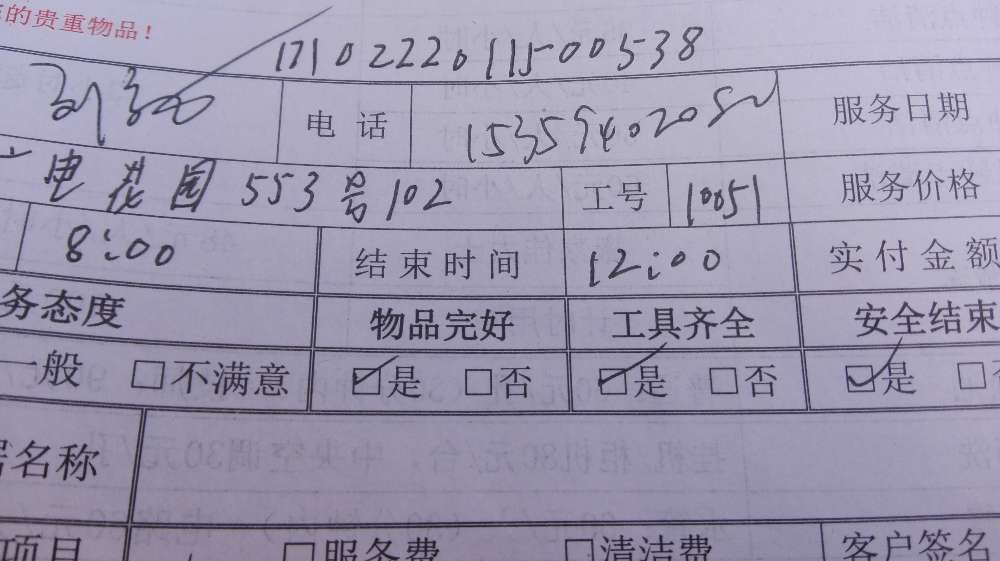 的贵重物品！
1710222011500538
电 话 15359402080 服务日期
电花园553号102 工号 10051 服务价格
8:00 结束时间 12:00 实付金额
务态度 物品完好 工具齐全 安全结束
一般 □不满意 ☑是 □否 ☑是 □否 ☑是
名称
项目 □服务费 □清洁费 客户签名